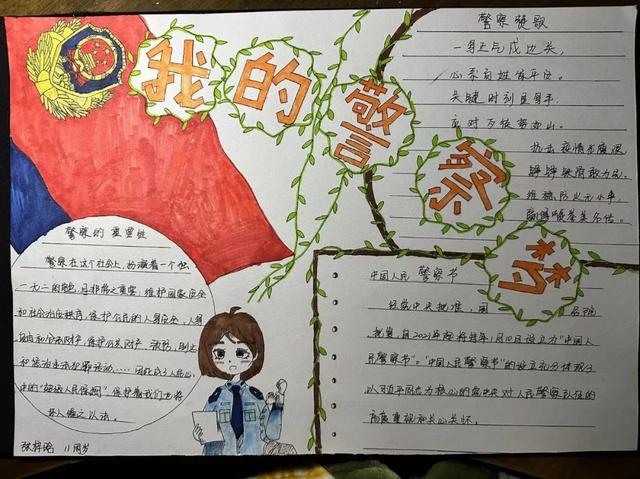 我的警察梦
警察赞歌
一身正气戍边关,
心系百姓保平安。
关键时刻显身手,
应对万候势如山。
抗击疫情
铮铮铁骨敢为民。
维稳防火无小事,
警察的重要性
警察在这个社会上,扮演着一个独
一无二的角色,且非常之重要,维护国家安全
和社会治安秩序,保护公民的人身安全、人身
自由和合法财产,保护公共财产、预防、制止
和惩治违法犯罪活动……因此成了人民心
中的“超级人民保姆”,保护着我们也将
坏人绳之以法……
中国人民警察节
经党中央批准、国
批复,自2021年起将每年1月10日设立为“中国人
民警察节”。“中国人民警察节”的设立充分体现了
以习近平同志为核心的党中央对人民警察队伍的
高度重视和关心关怀。
张梓 11周岁